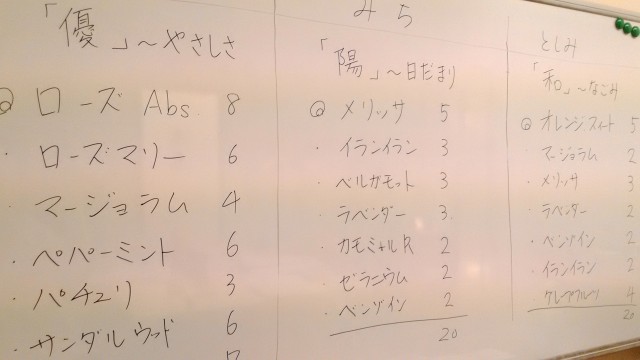 「優」～やさしさ
◎ ローズ Abs 8
・ ローズマリー 6
・ マージョラム 4
・ ペパーミント 6
・ パチュリ 3
・ サンダルウッド 6
みち
「陽」～日だまり
◎ メリッサ 5
・ イランイラン 3
・ ベルガモット 3
・ ラベンダー 3
・ カモミールR 2
・ ゼラニウム 2
・ ベンゾイン 2
20
としみ
「和」～なごみ
◎ オレンジスイート 5
・ マージョラム 2
・ メリッサ 3
・ ラベンダー 2
・ ベンゾイン 2
・ イランイラン 2
グレープフルーツ 4
20